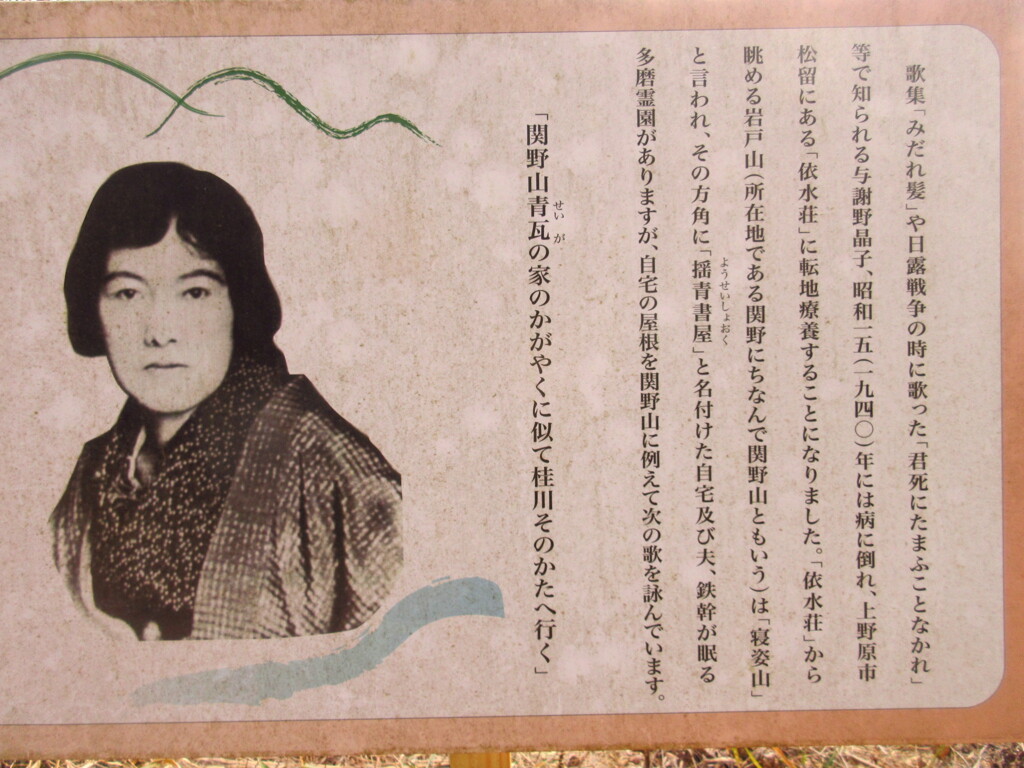 歌集「みだれ髪」や日露戦争の時に歌った「君死にたまふことなかれ」
等で知られる与謝野晶子、昭和一五（一九四〇）年には病に倒れ、上野原市
松留にある「依水荘」に転地療養することになりました。「依水荘」から
眺める岩戸山（所在地である関野にちなんで関野山ともいう）は「寝姿山」
と言われ、その方角に「揺青書屋」と名付けた自宅及び夫、鉄幹が眠る
ようせいしょおく
多磨霊園がありますが、自宅の屋根を関野山に例えて次の歌を詠んでいます。
「関野山青瓦の家のかがやくに似て桂川そのかたへ行く」
せいが